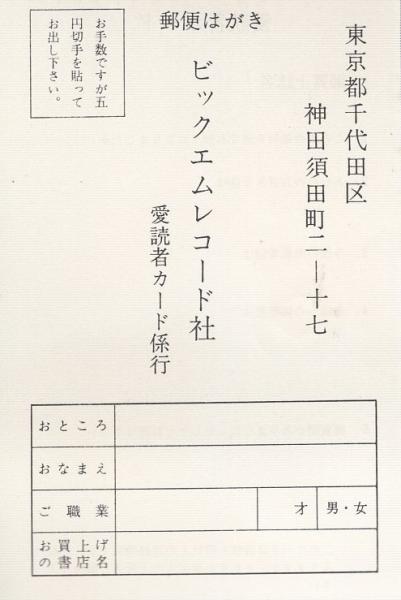 郵便はがき
お手数ですが五
円切手を貼って
お出し下さい。
東京都千代田区
神田須田町二―十七
ビックエムレコード社
愛読者カード係行
おところ
おなまえ
ご職業
才
男・女
お買上げ
の書店名